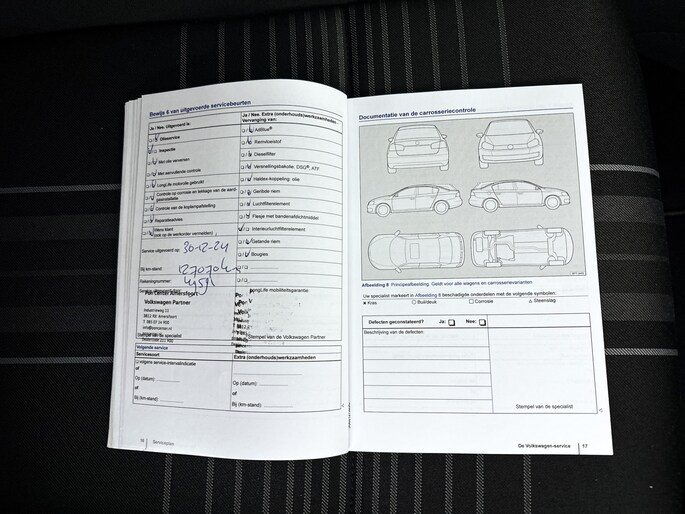 Bewijs 6 van uitgevoerde servicebeurten
Ja / Nee. Uitgevoerd is:
Olieservice
Inspectie
Met olie verversen
Met aanvullende controle
LongLife motorolie gebruikt
Controle op corrosie en lekkage van de aard-
gasinstallatie
Controle van de koplampafstelling
Reparatieadvies
Wens klant
(ook op de werkorder vermelden)
Service uitgevoerd op: 30-12-24
Bij km-stand: 127070 km
Rekeningnummer:
Pon Center Amersfoort
Volkswagen Partner
Industrieweg 11
Stempel van de specialist
Ja / Nee. Extra (onderhouds)werkzaamheden
Vervanging van:
AdBlue®
Remvloeistof
Dieselfilter
Versnellingsbakolie: DSG®, ATF
Haldex-koppeling: olie
Geribde riem
Luchtfilterelement
Flesje met bandenafdichtmiddel
Interieurluchtfilterelement
Getande riem
Bougies
LongLife mobiliteitsgarantie:
Stempel van de Volkswagen Partner
Volgende service
Servicesoort
volgens service-intervalindicatie
of
Op (datum):
of
Bij (km-stand):
Extra (onderhouds)werkzaamheden
Op (datum):
of
Bij (km-stand):
Serviceplan
Documentatie van de carrosseriecontrole
Afbeelding 8 Principeafbeelding. Geldt voor alle wagens en carrosserievarianten
Uw specialist markeert in Afbeelding 8 beschadigde onderdelen met de volgende symbolen:
× Kras ○ Buil/deuk □ Corrosie △ Steenslag
Defecten geconstateerd? Ja: Nee:
Beschrijving van de defecten:
Stempel van de specialist
De Volkswagen-service 17